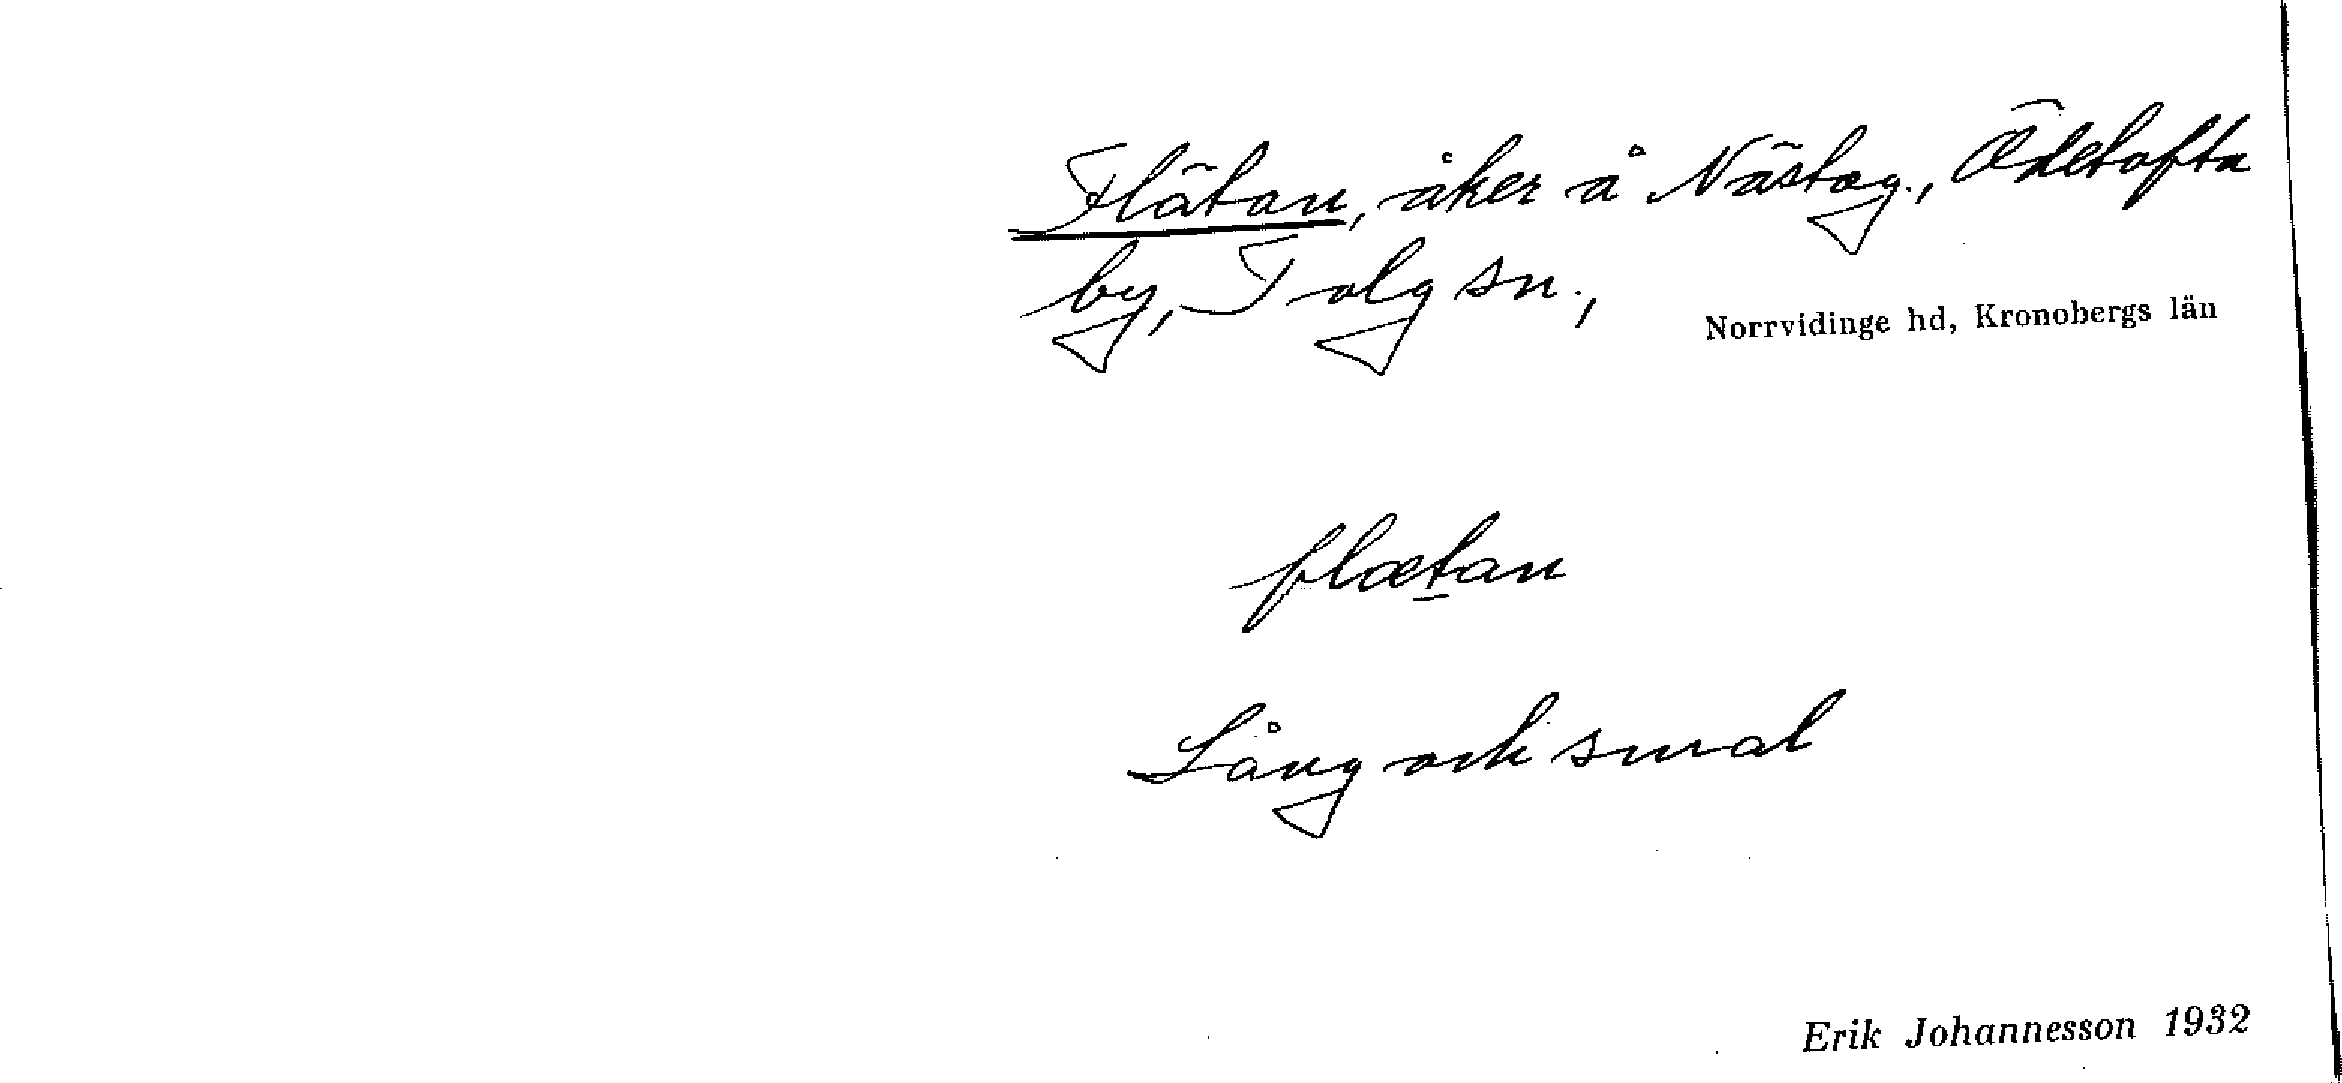 Flätan, åker å Västeg., Ödetofta
by, Tolg sn.,
Norrvidinge hd, Kronobergs län
flætan
Lång och smal
Erik Johannesson 1932